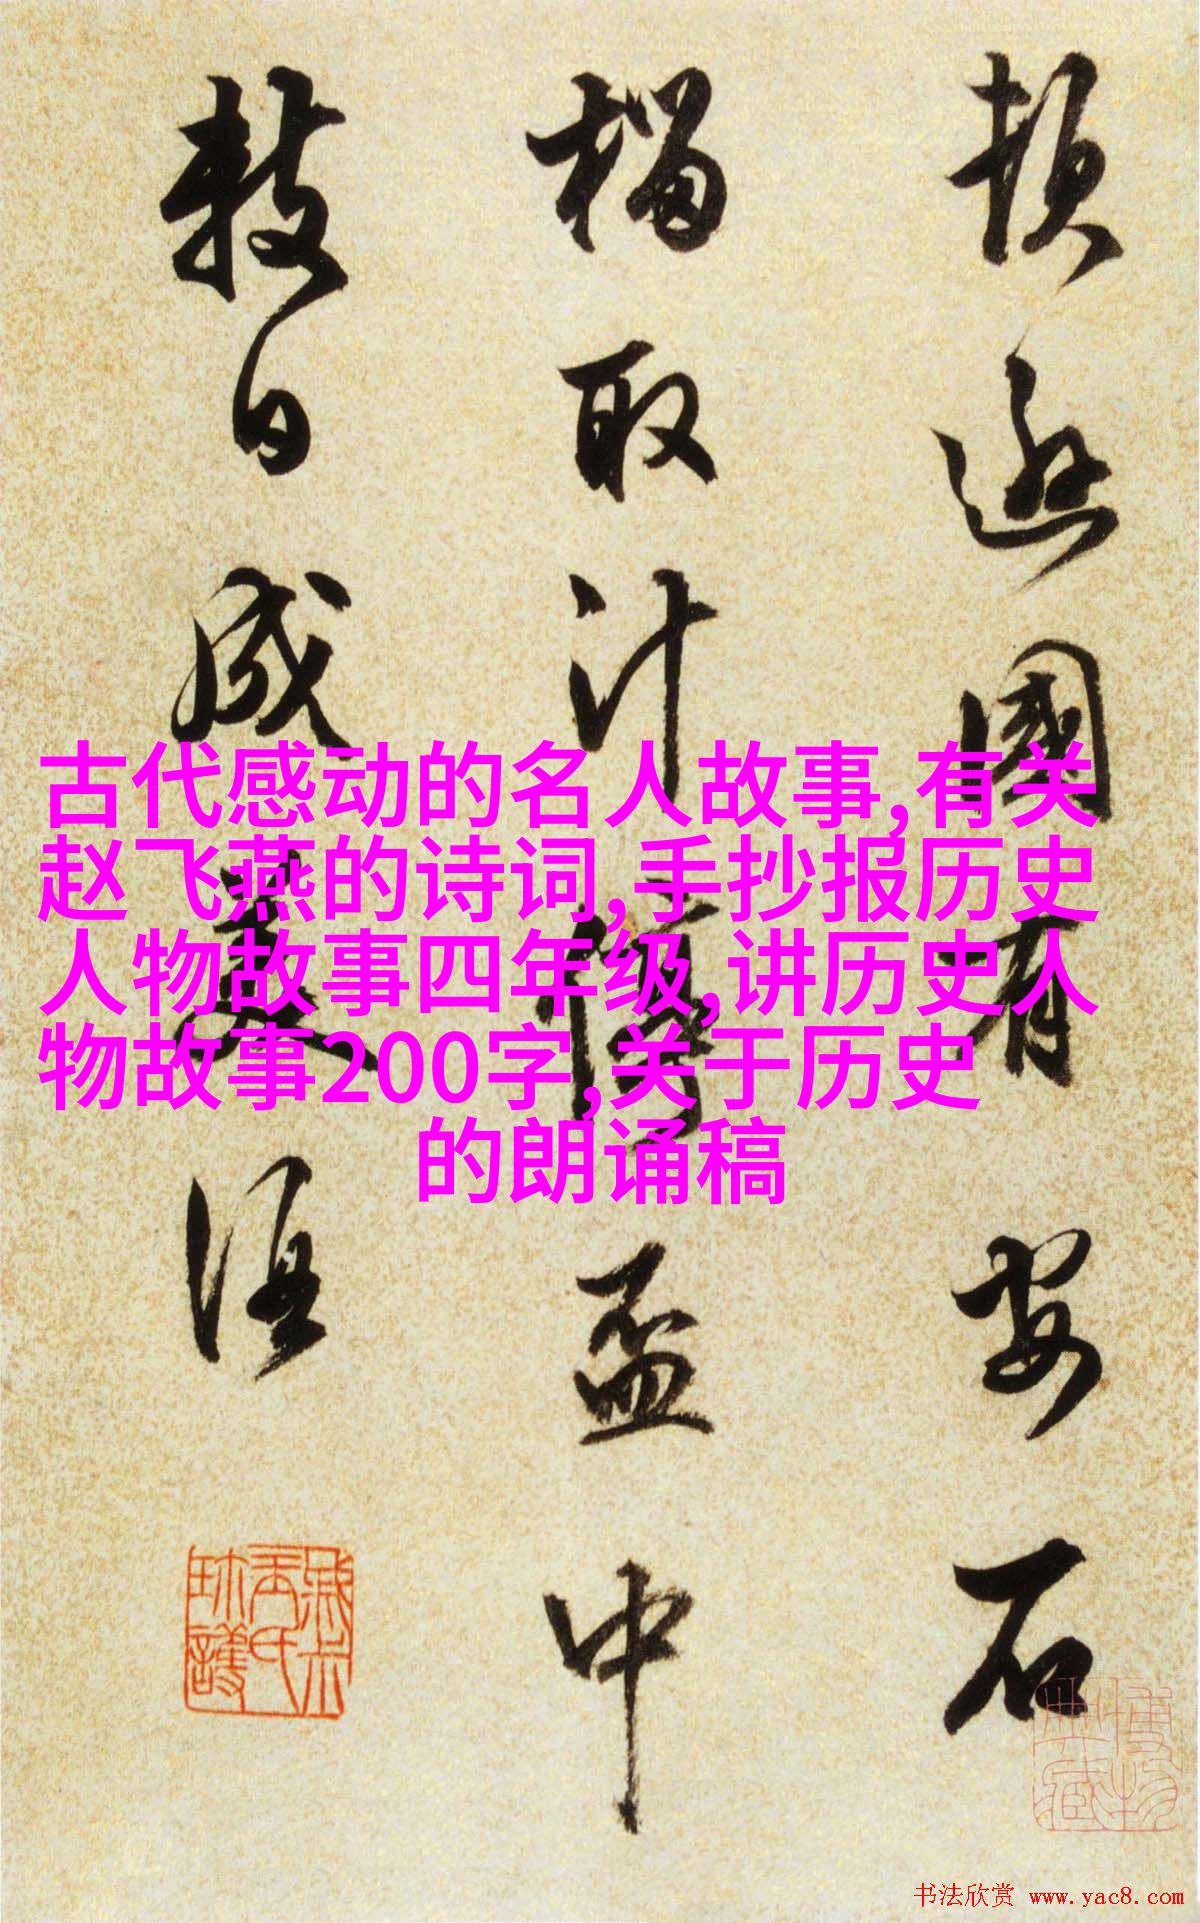 頓遜國有安石
榴取汁停盃中
數日成美酒
古代感动的名人故事,有关
赵飞燕的诗词,手抄报历史
人物故事四年级,讲历史人
物故事200字,关于历史
的朗诵稿
书法欣赏 www.yac8.com